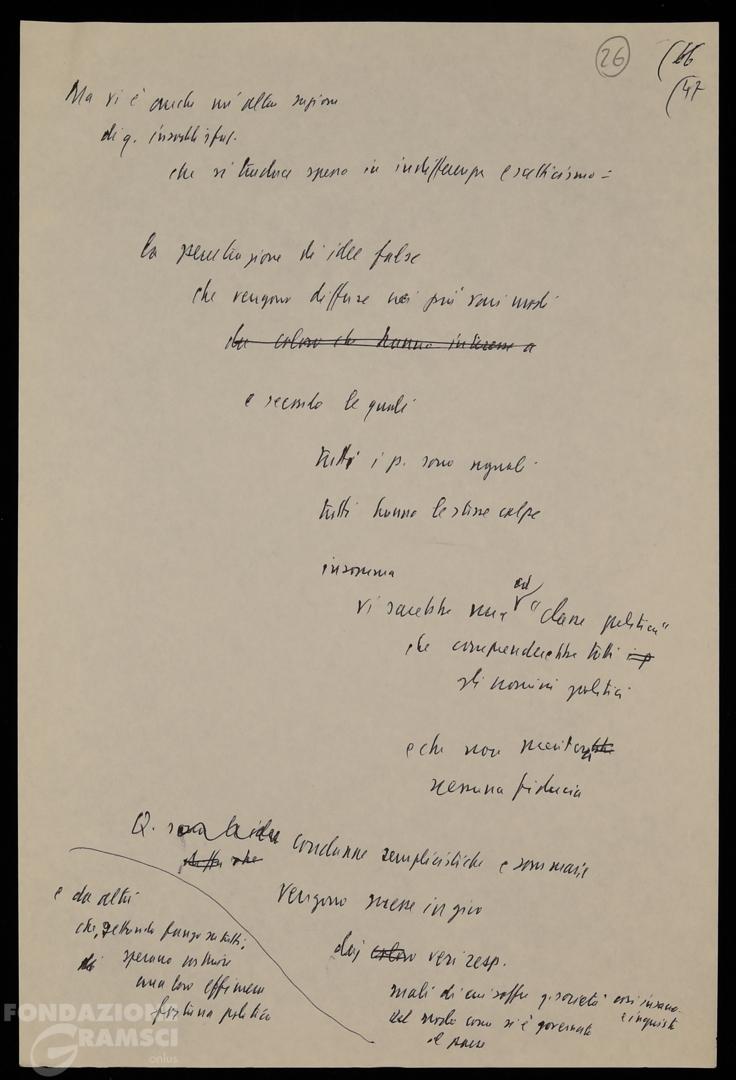 26
(66
(47
Ma vi è anche un'altra ragione
di q. insensibil.
che si traduce spesso in indifferenza e scetticismo =
la penetrazione di idee false
che vengono diffuse nei più vari modi
da coloro che hanno interesse a
e secondo le quali
tutti i p. sono uguali
tutti hanno le stesse colpe
insomma
vi sarebbe una "classe politica"
che comprenderebbe tutti i p
gli uomini politici
e che non merita
nessuna fiducia
Q. condanne semplicistiche e sommarie
vengono messe in giro
dai coloro veri resp.
mali di cui soffre q. società così insana
e ingiusta
del modo come si è governato
il paese
e da altri
che, gettando fango su tutti,
di sperano
una loro effimera
fortuna politica
FONDAZIONE
GRAMSCI
onlus